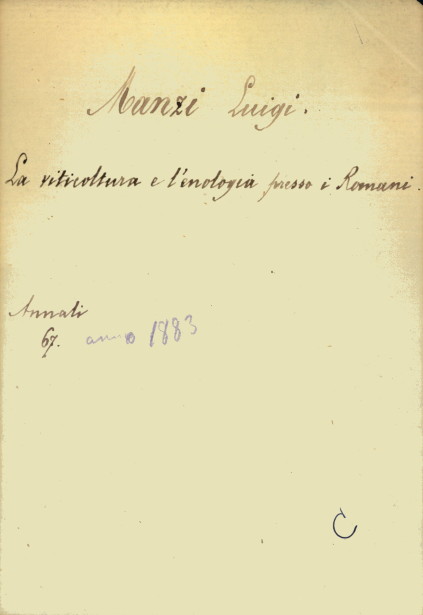 Manzi Luigi.
La viticoltura e l'enologia presso i Romani.
Annali
67. anno 1883
C